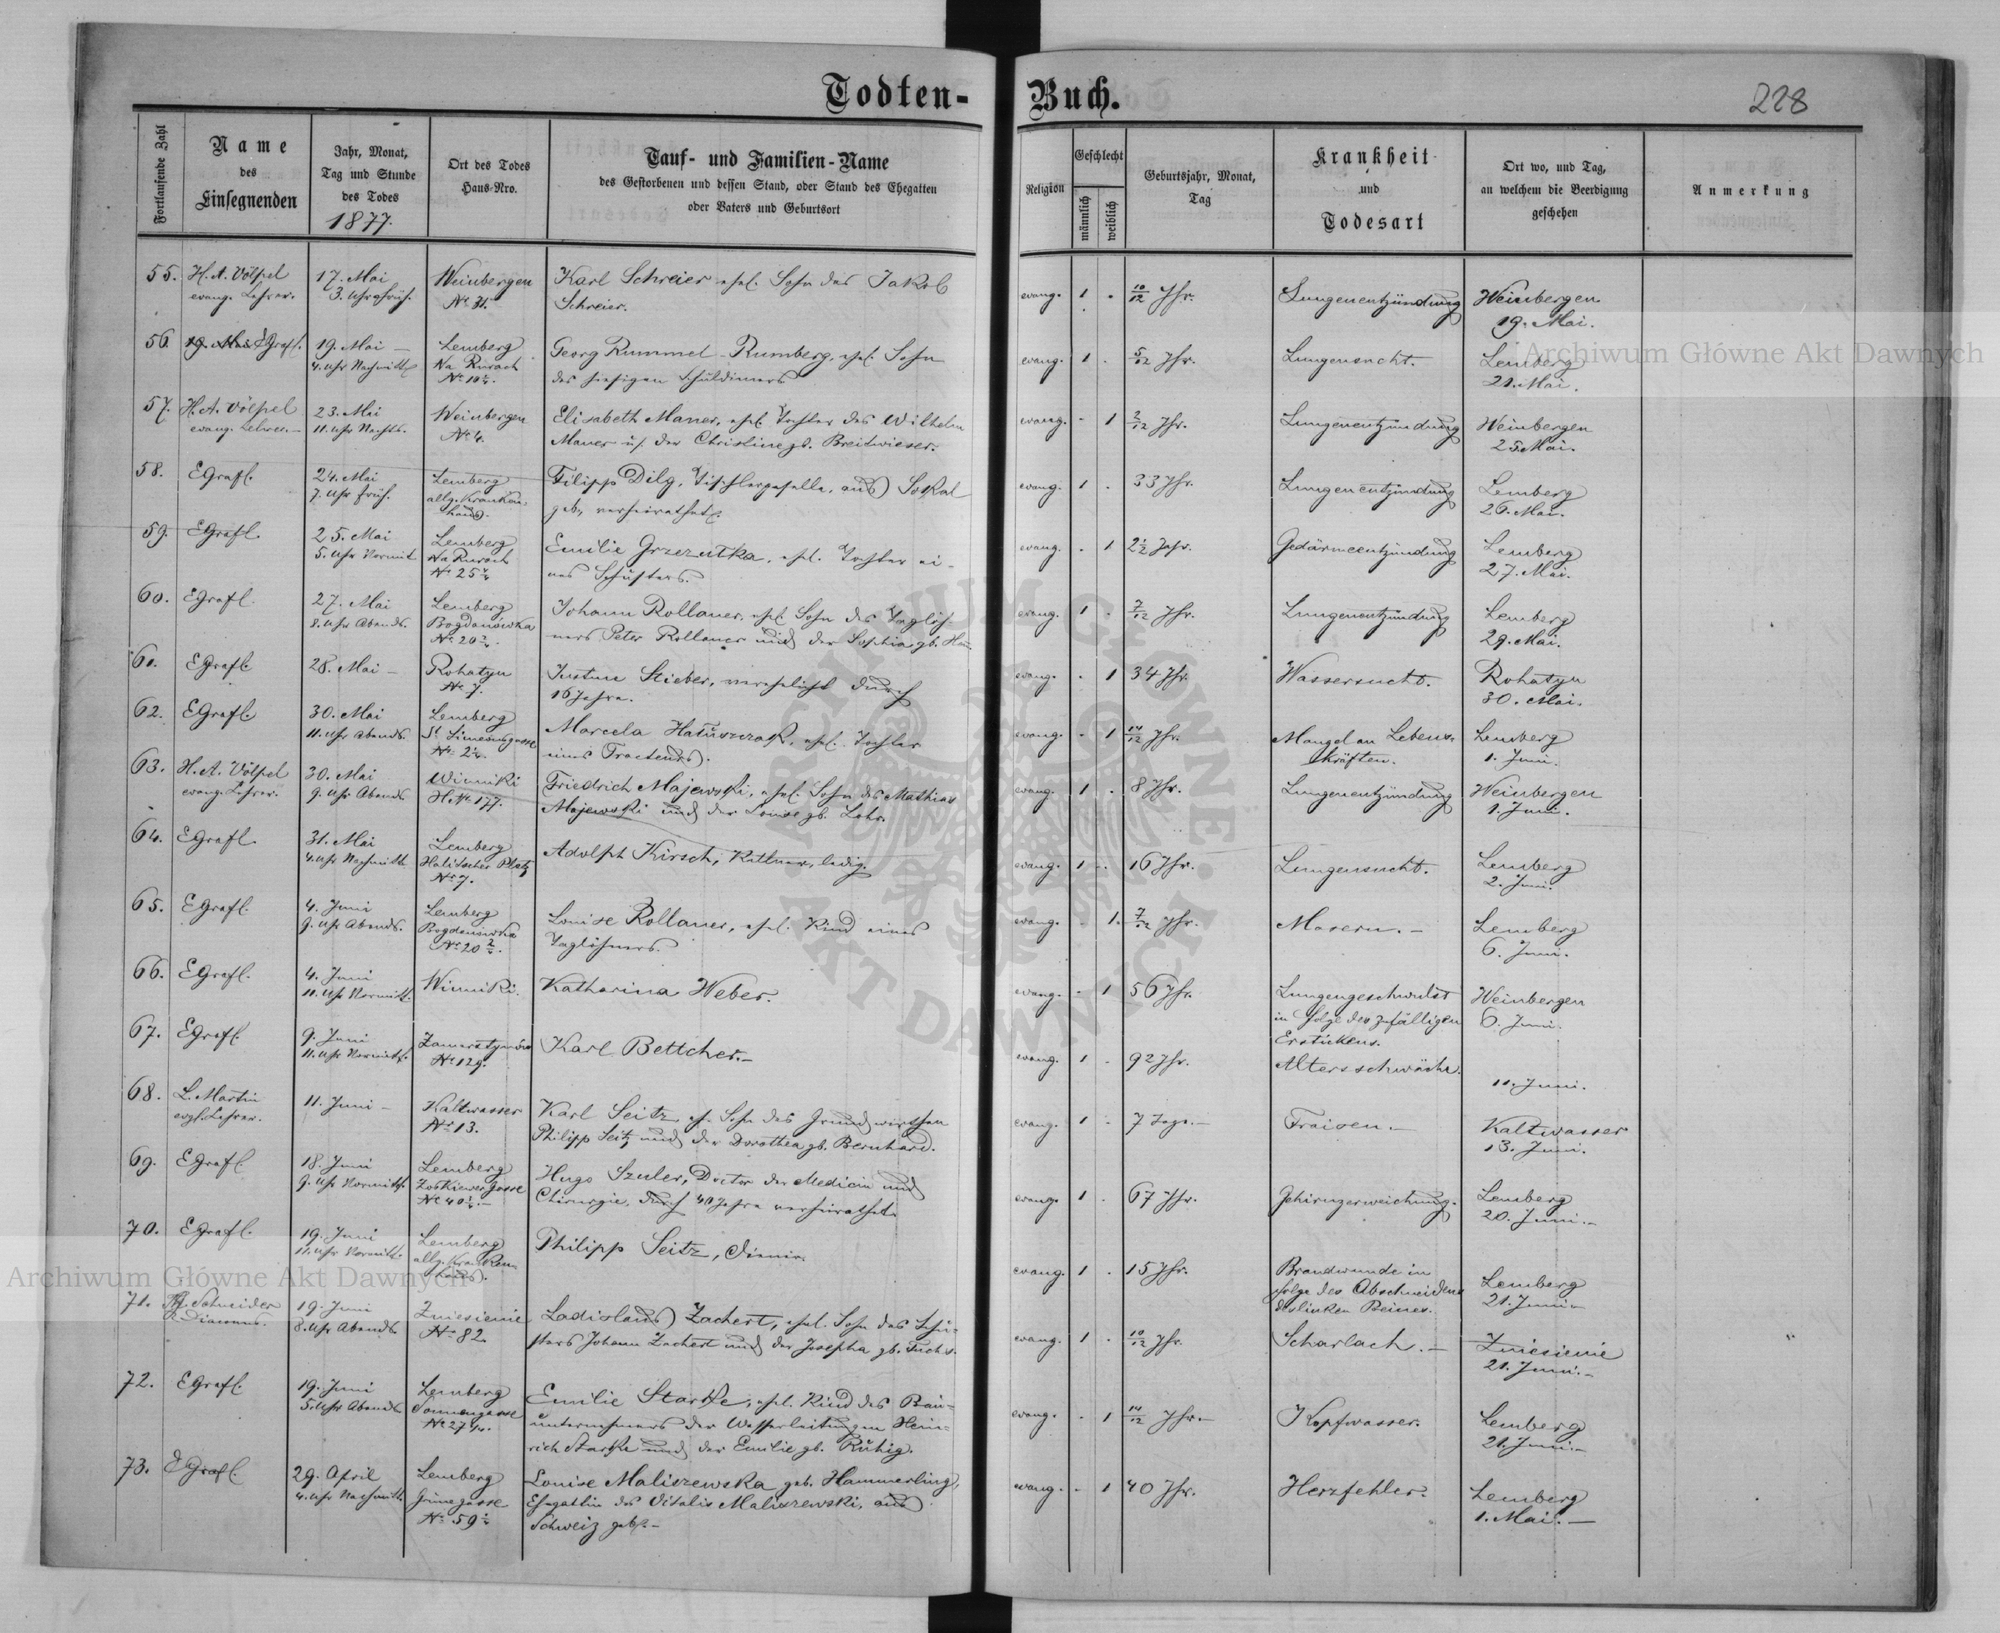 Todten-
Buch.
228
Fortlaufende Zahl
Name
des
Einsegnenden
Jahr, Monat,
Tag und Stunde
des Todes
1877.
Ort des Todes
Haus-Nro.
Tauf- und Familien-Name
des Gestorbenen und dessen Stand, oder Stand des Ehegatten
oder Vaters und Geburtsort
Religion
Geschlecht
männlich
weiblich
Geburtsjahr, Monat,
Tag
Krankheit
und
Todesart
Ort wo, und Tag,
an welchem die Beerdigung
geschehen
Anmerkung
55. H. A. Völpel 17. Mai Weinbergen Karl Schreier ehel. Sohn des Jakob
evang. Lehrer. 3. Uhr früh. Nr. 31. Schreier.
evang. 1 - 10/12 Jhr. Lungenentzündung Weinbergen
19. Mai.
56 EGrafl. 19. Mai Lemberg Georg Rummel-Rumberg, ehel. Sohn
4. Uhr Nachmitt. Na Rurach des hiesigen Schuldieners
evang. 1 - 5/12 Jhr. Lungensucht. Lemberg
21. Mai.
57. H. A. Völpel 23. Mai Weinbergen Elisabeth Maner, ehel. Tochter des Wilhelm
evang. Lehrer. 11. Uhr Nachts. Nr. 4. Maner u. der Christine gb. Breitwieser.
evang. - 1 2/12 Jhr. Lungenentzündung Weinbergen
25. Mai.
58. EGrafl. 24. Mai Lemberg Filipp Dilg, Tischlergeselle, aus Sokal
7. Uhr früh. allg. Kranken- geb., verheirathet.
haus.
evang. 1 - 33 Jhr. Lungenentzündung Lemberg
26. Mai.
59. EGrafl. 25. Mai Lemberg Emilie Grzezutka, ehel. Tochter ei-
5. Uhr Vormit. Na Rurach nes Schusters.
Nr. 25
evang. - 1 2½ Jahr. Gedärmeentzündung Lemberg
27. Mai.
60. EGrafl. 27. Mai Lemberg Johann Rollauer, ehel. Sohn des Taglöh-
8. Uhr Abends. Bogdanówka ners Peter Rollauer und der Sophia gb.
Nr. 20
evang. 1 - 7/12 Jhr. Lungenentzündung Lemberg
29. Mai.
61. EGrafl. 28. Mai - Rohatyn Justine Stieber, verehelicht durch
Nr. 7. 16 Jahre.
evang. - 1 34 Jhr. Wassersucht. Rohatyn
30. Mai.
62. EGrafl. 30. Mai Lemberg Marcela Hatuszczak, ehel. Tochter
11. Uhr Abends. St Simeonsgasse eines Tracteurs.
evang. - 1 14/12 Jhr. Mangel an Lebens- Lemberg
kräften. 1. Juni.
63. H. A. Völpel 30. Mai Winniki Friedrich Majewski, ehel. Sohn des Mathias
evang. Lehrer. 9. Uhr Abends H. Nr. 177. Majewski und der Louise gb. Lohr.
evang. 1 - 8 Jhr. Lungenentzündung Weinbergen
1. Juni.
64. EGrafl. 31. Mai Lemberg Adolph Kirsch, Kellner, ledig.
4. Uhr Nachmitt. Halitscher Platz
Nr. 7.
evang. 1 - 16 Jhr. Lungensucht. Lemberg
2. Juni.
65. EGrafl. 4. Juni Lemberg Louise Rollauer, ehel. Kind eines
9. Uhr Abends. Bogdanówka Taglöhners.
Nr. 20
evang. - 1. 7/12 Jhr. Masern. - Lemberg
6. Juni.
66. EGrafl. 4. Juni Winniki. Katharina Weber.
11. Uhr Vormitt.
evang. - 1 56 Jhr. Lungengeschwulst Weinbergen
in folge des zufälligen 6. Juni.
Erstickens.
67. EGrafl. 9. Juni Zamarstynów Karl Bettcher. -
11. Uhr Vormitt. Nr. 129.
evang. 1 - 92 Jhr. Altersschwäche.
11. Juni.
68. L. Martin 11. Juni - Kaltwasser Karl Seitz, eh. Sohn des Grundwirthen
evgl. Lehrer. Nr. 13. Philipp Seitz und der Dorothea gb. Bernhard.
evang. 1 - 7 Tage. - Fraisen. - Kaltwasser
13. Juni.
69. EGrafl. 18. Juni Lemberg Hugo Szuler, Doctor der Medicin und
9. Uhr Vormitt. Zolkiewer gasse Chirurgie, durch 40 Jahre verheirathet.
Nr. 40
evang. 1 - 67 Jhr. Gehirnzerweichung. Lemberg
20. Juni. -
70. EGrafl. 19. Juni Lemberg Philipp Seitz, Diener.
11. Uhr Vormitt. allg. Kranken-
haus.
evang. 1 - 15 Jhr. Brandwunde in Lemberg
folge des Abschneidens 21. Juni -
des linken Beines.
71. Schneider 19. Juni Zniesienie Ladislaus Zachert, ehel. Sohn des Schu-
Diacons. 8. Uhr Abends Nr. 82. sters Johann Zachert und der Josepha gb. Fuchs.
evang. 1 - 10/12 Jhr. Scharlach. - Zniesienie
21. Juni. -
72. EGrafl. 19. Juni Lemberg Emilie Starke, ehel. Kind des Bau-
5. Uhr Abends Sonnengasse unternehmers der Wasserleitungen Hein-
Nr. 27 rich Starke und der Emilie gb. Rühig.
evang. - 1 14/12 Jhr. - Kopfwasser. Lemberg
21. Juni. -
73. EGrafl. 29. April Lemberg Louise Maliszewska geb. Hammerling,
4. Uhr Nachmitt. Grünegasse Ehegattin des Vitalis Maliszewski, aus
Nr. 59 Schweiz geb. -
evang. - 1 40 Jhr. Herzfehler. Lemberg
1. Mai. -
Archiwum Główne Akt Dawnych
Archiwum Główne Akt Dawnych
ARCHIWUM GŁÓWNE AKT DAWNYCH